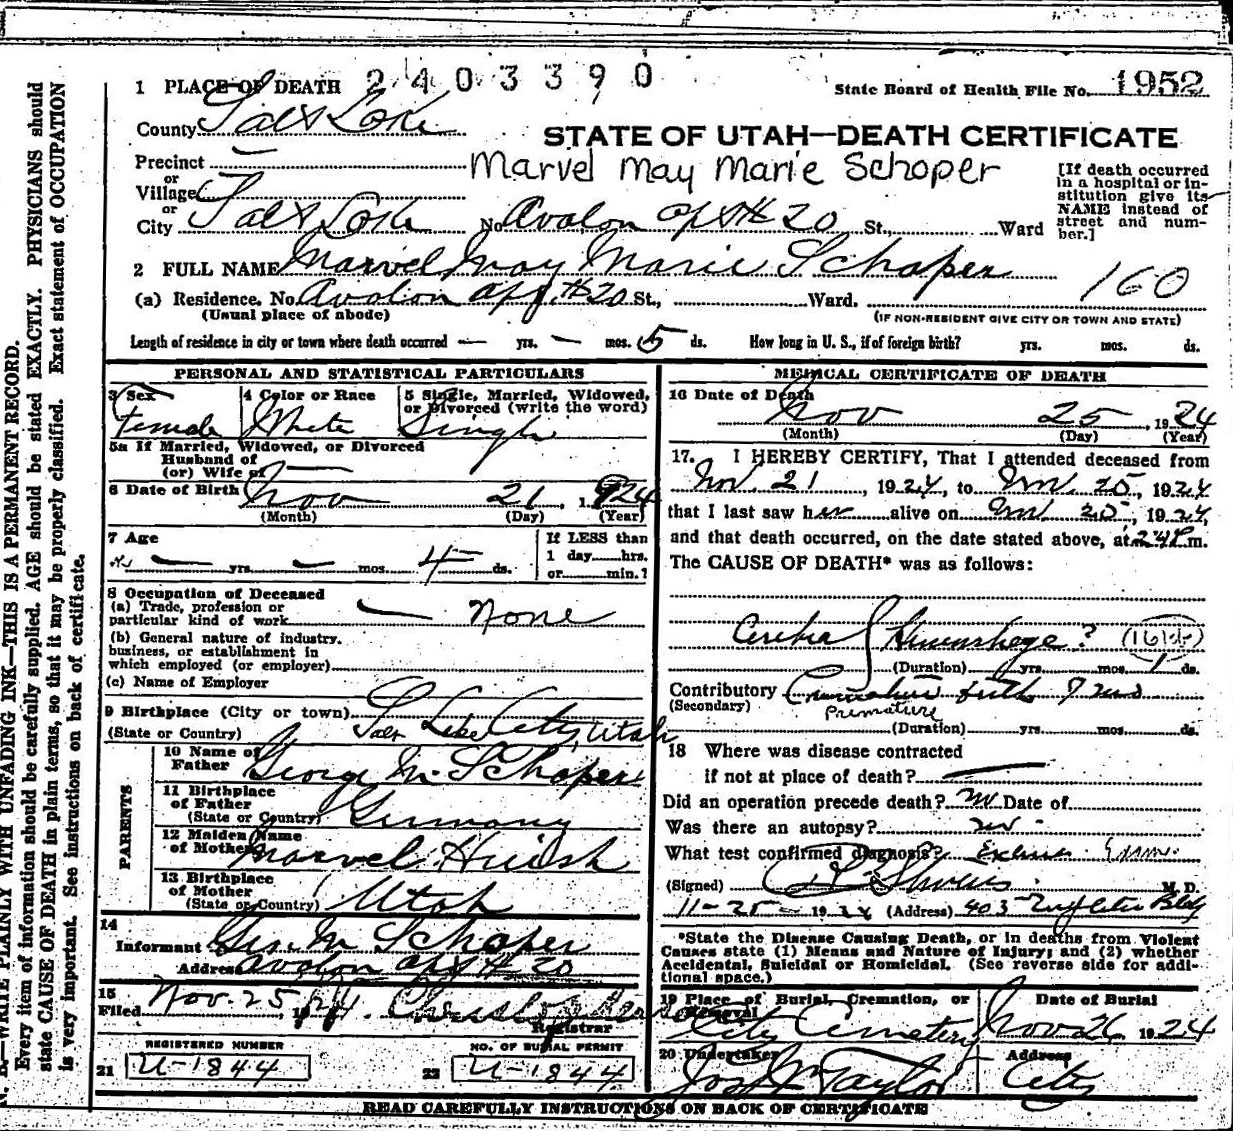 1 PLACE OF DEATH 2403390
State Board of Health File No. 1952
County Salt Lake
STATE OF UTAH—DEATH CERTIFICATE
Precinct
Marvel May Marie Schoper
or
Village
or
City Salt Lake No. Avalon apt # 20 St., Ward
[If death occurred
in a hospital or in-
stitution give its
NAME instead of
street and num-
ber.]
2 FULL NAME Marvel May Marie Schoper
160
(a) Residence. No. Avalon apt. # 20 St., Ward.
(Usual place of abode)
(IF NON-RESIDENT GIVE CITY OR TOWN AND STATE)
Length of residence in city or town where death occurred — yrs. — mos. 5 ds. How long in U. S., if of foreign birth? yrs. mos. ds.
PERSONAL AND STATISTICAL PARTICULARS
3 Sex
Female
4 Color or Race
White
5 Single, Married, Widowed,
or Divorced (write the word)
Single
5a If Married, Widowed, or Divorced
Husband of
(or) Wife of —
6 Date of Birth Nov 21, 1924
(Month) (Day) (Year)
7 Age
— yrs. — mos. 4 ds.
If LESS than
1 day hrs.
or min.?
8 Occupation of Deceased
(a) Trade, profession or
particular kind of work — None
(b) General nature of industry,
business, or establishment in
which employed (or employer)
(c) Name of Employer
9 Birthplace (City or town)
(State or Country) Salt Lake City, Utah
PARENTS
10 Name of
Father George M. Schoper
11 Birthplace
of Father
(State or Country) Germany
12 Maiden Name
of Mother Marvel Huish
13 Birthplace
of Mother
(State or Country) Utah
14
Informant Geo. M Schoper
Address Avalon apt # 20
15
Filed Nov. 25, 1924
Registrar
REGISTERED NUMBER
21 U-1844
NO. OF BURIAL PERMIT
22 U-1844
MEDICAL CERTIFICATE OF DEATH
16 Date of Death
Nov 25, 1924
(Month) (Day) (Year)
17. I HEREBY CERTIFY, That I attended deceased from
Nov. 21, 1924, to Nov. 25, 1924
that I last saw her alive on Nov 25, 1924,
and that death occurred, on the date stated above, at m.
The CAUSE OF DEATH* was as follows:
Cerebral Hemorrhage?
(Duration) yrs. mos. 1 ds.
Contributory Premature birth 7 mos
(Secondary) Premature
(Duration) yrs. mos. ds.
18 Where was disease contracted
if not at place of death? —
Did an operation precede death? no Date of
Was there an autopsy? no
What test confirmed diagnosis?
(Signed) M. D.
11-25- 1924 (Address) 403 Bldg
*State the Disease Causing Death, or in deaths from Violent
Causes state (1) Means and Nature of Injury; and (2) whether
Accidental, Suicidal or Homicidal. (See reverse side for addi-
tional space.)
19 Place of Burial, Cremation, or
Removal
City Cemetery
Date of Burial
Nov 26 1924
20 Undertaker
Jos. Wm Taylor
Address
City
READ CAREFULLY INSTRUCTIONS ON BACK OF CERTIFICATE
N. B.—WRITE PLAINLY WITH UNFADING INK—THIS IS A PERMANENT RECORD.
Every item of information should be carefully supplied. AGE should be stated EXACTLY. PHYSICIANS should
state CAUSE OF DEATH in plain terms, so that it may be properly classified. Exact statement of OCCUPATION
is very important. See instructions on back of certificate.